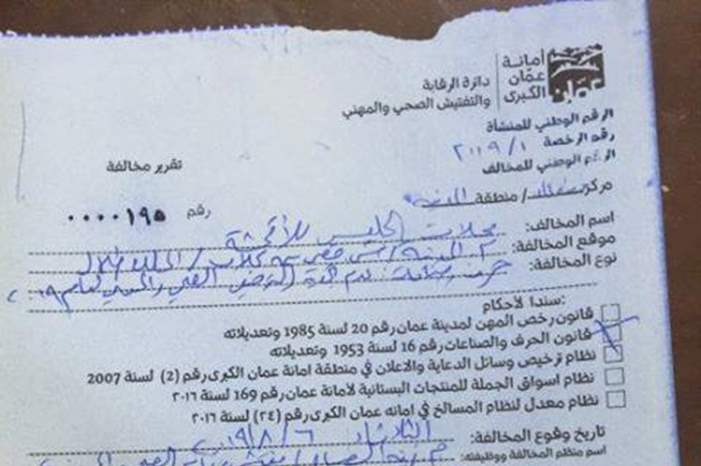 أمانة
عمّان
الكبرى
عمان
دائرة الرقابة
والتفتيش الصحي والمهني
الرقم الوطني للمنشأة
رقم الرخصة ٢٠١٩/١
الرقم الوطني للمخالف
مركز / منطقة المدينة
تقرير مخالفة
رقم ٠٠٠٠١٩٥
اسم المخالف: محلات الجليس للأقمشة
موقع المخالفة: المدينة / /
نوع المخالفة: الترخيص الفني والمهني لعام ٢٠١٩
سنداً لأحكام:
قانون رخص المهن لمدينة عمان رقم 20 لسنة 1985 وتعديلاته
قانون الحرف والصناعات رقم 16 لسنة 1953 وتعديلاته
نظام ترخيص وسائل الدعاية والاعلان في منطقة امانة عمان الكبرى رقم (2) لسنة 2007
نظام اسواق الجملة للمنتجات البستانية لأمانة عمان رقم 169 لسنة ٢٠١٦
نظام معدل لنظام المسالخ في امانه عمان الكبرى رقم (٢٤) لسنة ٢٠١٦
تاريخ وقوع المخالفة: الثلاثاء ٢٠١٩/٨/٦
اسم منظم المخالفة ووظيفته: